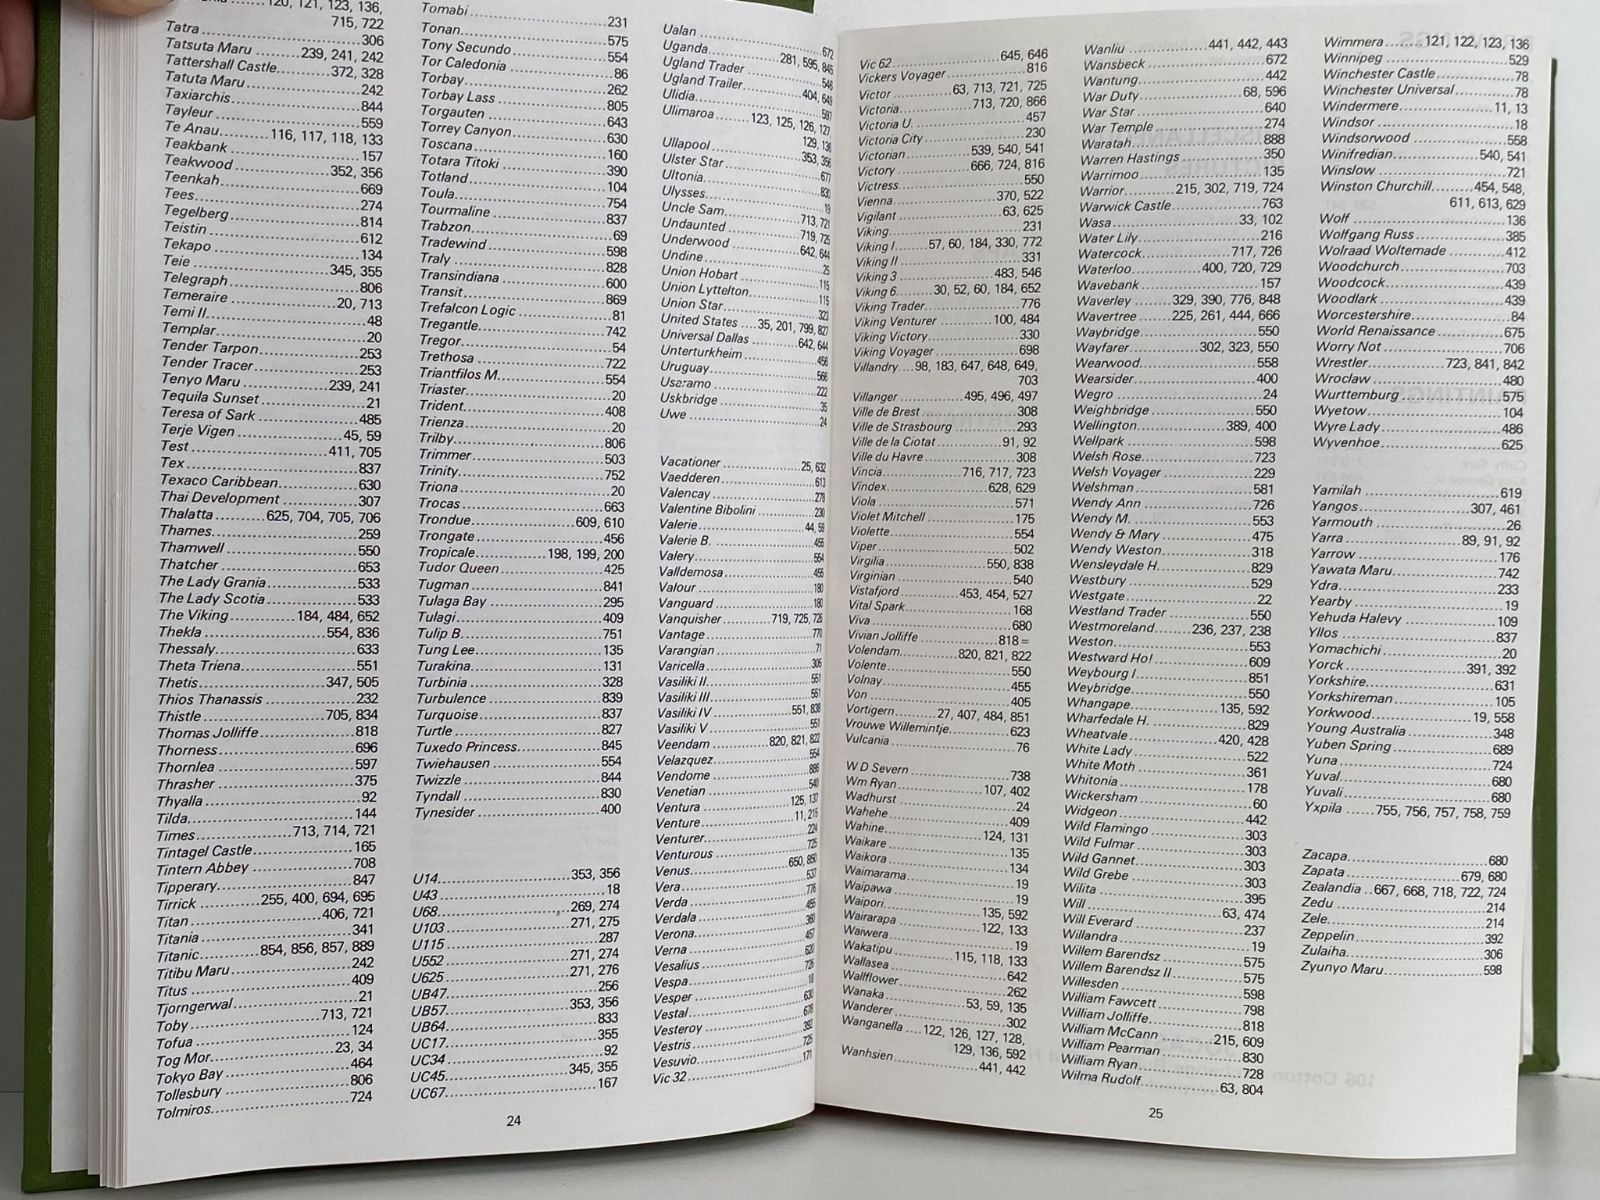 120, 121, 123, 136,
715, 722
Tatra ..... 306
Tatsuta Maru ..... 239, 241, 242
Tattershall Castle ..... 372, 328
Tatuta Maru ..... 242
Taxiarchis ..... 844
Tayleur ..... 559
Te Anau ..... 116, 117, 118, 133
Teakbank ..... 157
Teakwood ..... 352, 356
Teenkah ..... 669
Tees ..... 274
Tegelberg ..... 814
Teistin ..... 612
Tekapo ..... 134
Teie ..... 345, 355
Telegraph ..... 806
Temeraire ..... 20, 713
Temi II ..... 48
Templar ..... 20
Tender Tarpon ..... 253
Tender Tracer ..... 253
Tenyo Maru ..... 239, 241
Tequila Sunset ..... 21
Teresa of Sark ..... 485
Terje Vigen ..... 45, 59
Test ..... 411, 705
Tex ..... 837
Texaco Caribbean ..... 630
Thai Development ..... 307
Thalatta ..... 625, 704, 705, 706
Thames ..... 259
Thamwell ..... 550
Thatcher ..... 653
The Lady Grania ..... 533
The Lady Scotia ..... 533
The Viking ..... 184, 484, 652
Thekla ..... 554, 836
Thessaly ..... 633
Theta Triena ..... 551
Thetis ..... 347, 505
Thios Thanassis ..... 232
Thistle ..... 705, 834
Thomas Jolliffe ..... 818
Thorness ..... 696
Thornlea ..... 597
Thrasher ..... 375
Thyalla ..... 92
Tilda ..... 144
Times ..... 713, 714, 721
Tintagel Castle ..... 165
Tintern Abbey ..... 708
Tipperary ..... 847
Tirrick ..... 255, 400, 694, 695
Titan ..... 406, 721
Titania ..... 341
Titanic ..... 854, 856, 857, 889
Titibu Maru ..... 242
Titus ..... 409
Tjorngerwal ..... 21
Toby ..... 713, 721
Tofua ..... 124
Tog Mor ..... 23, 34
Tokyo Bay ..... 464
Tollesbury ..... 806
Tolmiros ..... 724
Tomabi ..... 231
Tonan ..... 575
Tony Secundo ..... 554
Tor Caledonia ..... 86
Torbay ..... 262
Torbay Lass ..... 805
Torgauten ..... 643
Torrey Canyon ..... 630
Toscana ..... 160
Totara Titoki ..... 390
Totland ..... 104
Toula ..... 754
Tourmaline ..... 837
Trabzon ..... 69
Tradewind ..... 598
Traly ..... 828
Transindiana ..... 600
Transit ..... 869
Trefalcon Logic ..... 81
Tregantle ..... 742
Tregor ..... 54
Trethosa ..... 722
Triantfilos M ..... 554
Triaster ..... 20
Trident ..... 408
Trienza ..... 20
Trilby ..... 806
Trimmer ..... 503
Trinity ..... 752
Triona ..... 20
Trocas ..... 663
Trondue ..... 609, 610
Trongate ..... 456
Tropicale ..... 198, 199, 200
Tudor Queen ..... 425
Tugman ..... 841
Tulaga Bay ..... 295
Tulagi ..... 409
Tulip B. ..... 751
Tung Lee ..... 135
Turakina ..... 131
Turbinia ..... 328
Turbulence ..... 839
Turquoise ..... 837
Turtle ..... 827
Tuxedo Princess ..... 845
Twiehausen ..... 554
Twizzle ..... 844
Tyndall ..... 830
Tynesider ..... 400
U14 ..... 353, 356
U43 ..... 18
U68 ..... 269, 274
U103 ..... 271, 275
U115 ..... 287
U552 ..... 271, 274
U625 ..... 271, 276
UB47 ..... 256
UB57 ..... 353, 356
UB64 ..... 833
UC17 ..... 355
UC34 ..... 92
UC45 ..... 345, 355
UC67 ..... 167
Ualan ..... 672
Uganda ..... 281, 595, 845
Ugland Trader ..... 546
Ugland Trailer ..... 404, 649
Ulidia ..... 597
Ulimaroa ..... 123, 125, 126, 127,
129, 136
Ullapool ..... 353, 356
Ulster Star ..... 677
Ultonia ..... 830
Ulysses ..... 19
Uncle Sam ..... 713, 721
Undaunted ..... 719, 725
Underwood ..... 642, 644
Undine ..... 25
Union Hobart ..... 115
Union Lyttelton ..... 115
Union Star ..... 323
United States ..... 35, 201, 799, 827
Universal Dallas ..... 642, 644
Unterturkheim ..... 456
Uruguay ..... 566
Usaramo ..... 222
Uskbridge ..... 35
Uwe ..... 24
Vacationer ..... 25, 632
Vaedderen ..... 613
Valencay ..... 278
Valentine Bibolini ..... 230
Valerie ..... 44, 59
Valerie B. ..... 455
Valery ..... 554
Valldemosa ..... 455
Valour ..... 180
Vanguard ..... 180
Vanquisher ..... 719, 725, 726
Vantage ..... 770
Varangian ..... 71
Varicella ..... 306
Vasiliki II ..... 551
Vasiliki III ..... 551
Vasiliki IV ..... 551, 838
Vasiliki V ..... 551
Veendam ..... 820, 821, 822
Velazquez ..... 554
Vendome ..... 886
Venetian ..... 540
Ventura ..... 125, 137
Venture ..... 11, 215
Venturer ..... 224
Venturous ..... 725
Venus ..... 650, 850
Vera ..... 537
Verda ..... 776
Verdala ..... 455
Verona ..... 360
Verna ..... 457
Vesalius ..... 620
Vespa ..... 726
Vesper ..... 18
Vestal ..... 630
Vesteroy ..... 678
Vestris ..... 392
Vesuvio ..... 725
Vic 32 ..... 171
24
Vic 62 ..... 645, 646
Vickers Voyager ..... 816
Victor ..... 63, 713, 721, 725
Victoria ..... 713, 720, 866
Victoria U. ..... 457
Victoria City ..... 230
Victorian ..... 539, 540, 541
Victory ..... 666, 724, 816
Victress ..... 550
Vienna ..... 370, 522
Vigilant ..... 63, 625
Viking ..... 231
Viking I ..... 57, 60, 184, 330, 772
Viking II ..... 331
Viking 3 ..... 483, 546
Viking 6 ..... 30, 52, 60, 184, 652
Viking Trader ..... 776
Viking Venturer ..... 100, 484
Viking Victory ..... 330
Viking Voyager ..... 698
Villandry ..... 98, 183, 647, 648, 649,
703
Villanger ..... 495, 496, 497
Ville de Brest ..... 308
Ville de Strasbourg ..... 293
Ville de la Ciotat ..... 91, 92
Ville du Havre ..... 308
Vincia ..... 716, 717, 723
Vindex ..... 628, 629
Viola ..... 571
Violet Mitchell ..... 175
Violette ..... 554
Viper ..... 502
Virgilia ..... 550, 838
Virginian ..... 540
Vistafjord ..... 453, 454, 527
Vital Spark ..... 168
Viva ..... 680
Vivian Jolliffe ..... 818 =
Volendam ..... 820, 821, 822
Volente ..... 550
Volnay ..... 455
Von ..... 405
Vortigern ..... 27, 407, 484, 851
Vrouwe Willemintje ..... 623
Vulcania ..... 76
W D Severn ..... 738
Wm Ryan ..... 107, 402
Wadhurst ..... 24
Wahehe ..... 409
Wahine ..... 124, 131
Waikare ..... 135
Waikora ..... 134
Waimarama ..... 19
Waipawa ..... 19
Waipori ..... 135, 592
Wairarapa ..... 122, 133
Waiwera ..... 19
Wakatipu ..... 115, 118, 133
Wallasea ..... 642
Wallflower ..... 262
Wanaka ..... 53, 59, 135
Wanderer ..... 302
Wanganella ..... 122, 126, 127, 128,
129, 136, 592
Wanhsien ..... 441, 442
Wanliu ..... 441, 442, 443
Wansbeck ..... 672
Wantung ..... 442
War Duty ..... 68, 596
War Star ..... 640
War Temple ..... 274
Waratah ..... 888
Warren Hastings ..... 350
Warrimoo ..... 135
Warrior ..... 215, 302, 719, 724
Warwick Castle ..... 763
Wasa ..... 33, 102
Water Lily ..... 216
Watercock ..... 717, 726
Waterloo ..... 400, 720, 729
Wavebank ..... 157
Waverley ..... 329, 390, 776, 848
Wavertree ..... 225, 261, 444, 666
Waybridge ..... 550
Wayfarer ..... 302, 323, 550
Wearwood ..... 558
Wearsider ..... 400
Wegro ..... 24
Weighbridge ..... 550
Wellington ..... 389, 400
Wellpark ..... 598
Welsh Rose ..... 723
Welsh Voyager ..... 229
Welshman ..... 581
Wendy Ann ..... 726
Wendy M. ..... 553
Wendy & Mary ..... 475
Wendy Weston ..... 318
Wensleydale H. ..... 829
Westbury ..... 529
Westgate ..... 22
Westland Trader ..... 550
Westmoreland ..... 236, 237, 238
Weston ..... 553
Westward Ho! ..... 609
Weybourg I ..... 851
Weybridge ..... 550
Whangape ..... 135, 592
Wharfedale H. ..... 829
Wheatvale ..... 420, 428
White Lady ..... 522
White Moth ..... 361
Whitonia ..... 178
Wickersham ..... 60
Widgeon ..... 442
Wild Flamingo ..... 303
Wild Fulmar ..... 303
Wild Gannet ..... 303
Wild Grebe ..... 303
Wilita ..... 395
Will ..... 63, 474
Will Everard ..... 237
Willandra ..... 19
Willem Barendsz ..... 575
Willem Barendsz II ..... 575
Willesden ..... 598
William Fawcett ..... 798
William Jolliffe ..... 818
William McCann ..... 215, 609
William Pearman ..... 830
William Ryan ..... 728
Wilma Rudolf ..... 63, 804
Wimmera ..... 121, 122, 123, 136
Winnipeg ..... 529
Winchester Castle ..... 78
Winchester Universal ..... 78
Windermere ..... 11, 13
Windsor ..... 18
Windsorwood ..... 558
Winifredian ..... 540, 541
Winslow ..... 721
Winston Churchill ..... 454, 548,
611, 613, 629
Wolf ..... 136
Wolfgang Russ ..... 385
Wolraad Woltemade ..... 412
Woodchurch ..... 703
Woodcock ..... 439
Woodlark ..... 439
Worcestershire ..... 84
World Renaissance ..... 675
Worry Not ..... 706
Wrestler ..... 723, 841, 842
Wroclaw ..... 480
Wurttemburg ..... 575
Wyetow ..... 104
Wyre Lady ..... 486
Wyvenhoe ..... 625
Yamilah ..... 619
Yangos ..... 307, 461
Yarmouth ..... 26
Yarra ..... 89, 91, 92
Yarrow ..... 176
Yawata Maru ..... 742
Ydra ..... 233
Yearby ..... 19
Yehuda Halevy ..... 109
Yllos ..... 837
Yomachichi ..... 20
Yorck ..... 391, 392
Yorkshire ..... 631
Yorkshireman ..... 105
Yorkwood ..... 19, 558
Young Australia ..... 348
Yuben Spring ..... 689
Yuna ..... 724
Yuval ..... 680
Yuvali ..... 680
Yxpila ..... 755, 756, 757, 758, 759
Zacapa ..... 680
Zapata ..... 679, 680
Zealandia ..... 667, 668, 718, 722, 724
Zedu ..... 214
Zele ..... 214
Zeppelin ..... 392
Zulaiha ..... 306
Zyunyo Maru ..... 598
25